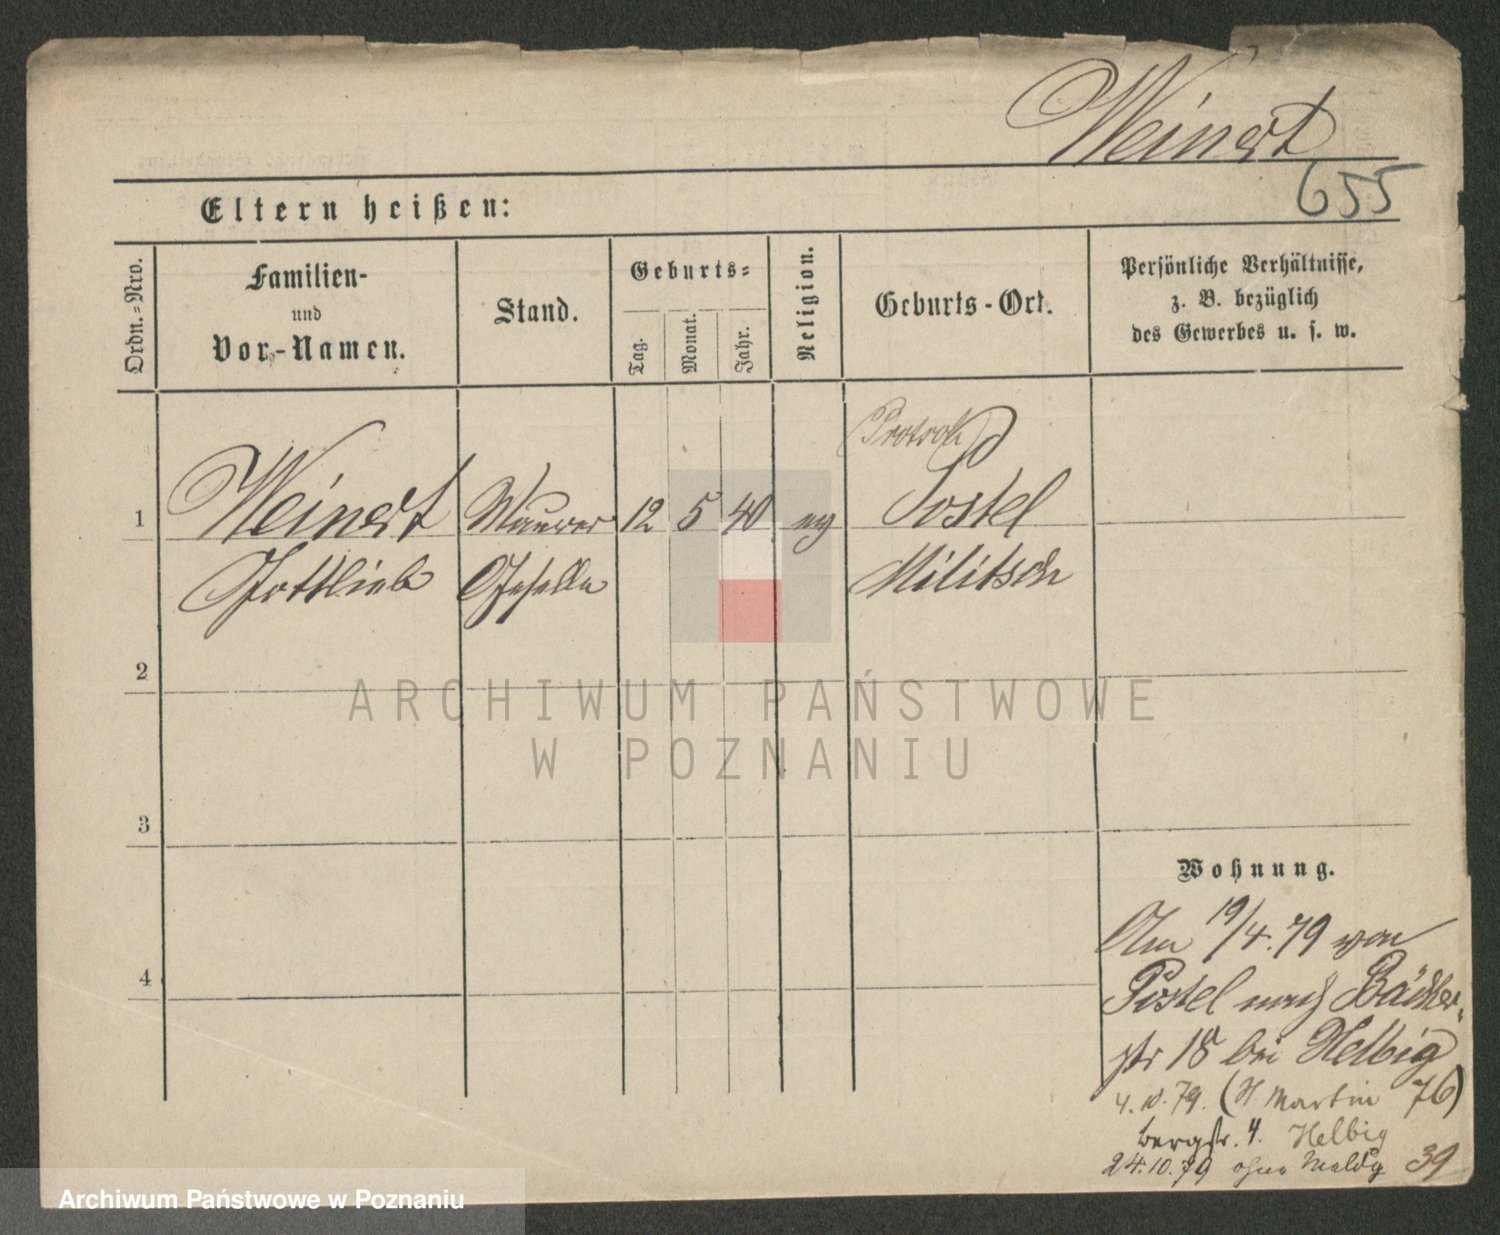 Weinert
655
Eltern heißen:
Ordn.=Nro.
Familien-
und
Vor-Namen.
Stand.
Geburts=
Tag.
Monat.
Jahr.
Religion.
Geburts-Ort.
Persönliche Verhältnisse,
z. B. bezüglich
des Gewerbes u. s. w.
1
Weinert
Gottlieb
Maurer
Geselle
12
5
40
ev
Postel
Militsch
2
3
4
Wohnung.
Am 19/4.79 von
Postel nach Bäcker-
str 18 bei Helbig
4.10.79. (St Martin 76)
bergstr. 4. Helbig
24.10.79 ohne Meldg 39
ARCHIWUM PAŃSTWOWE
W POZNANIU
Archiwum Państwowe w Poznaniu